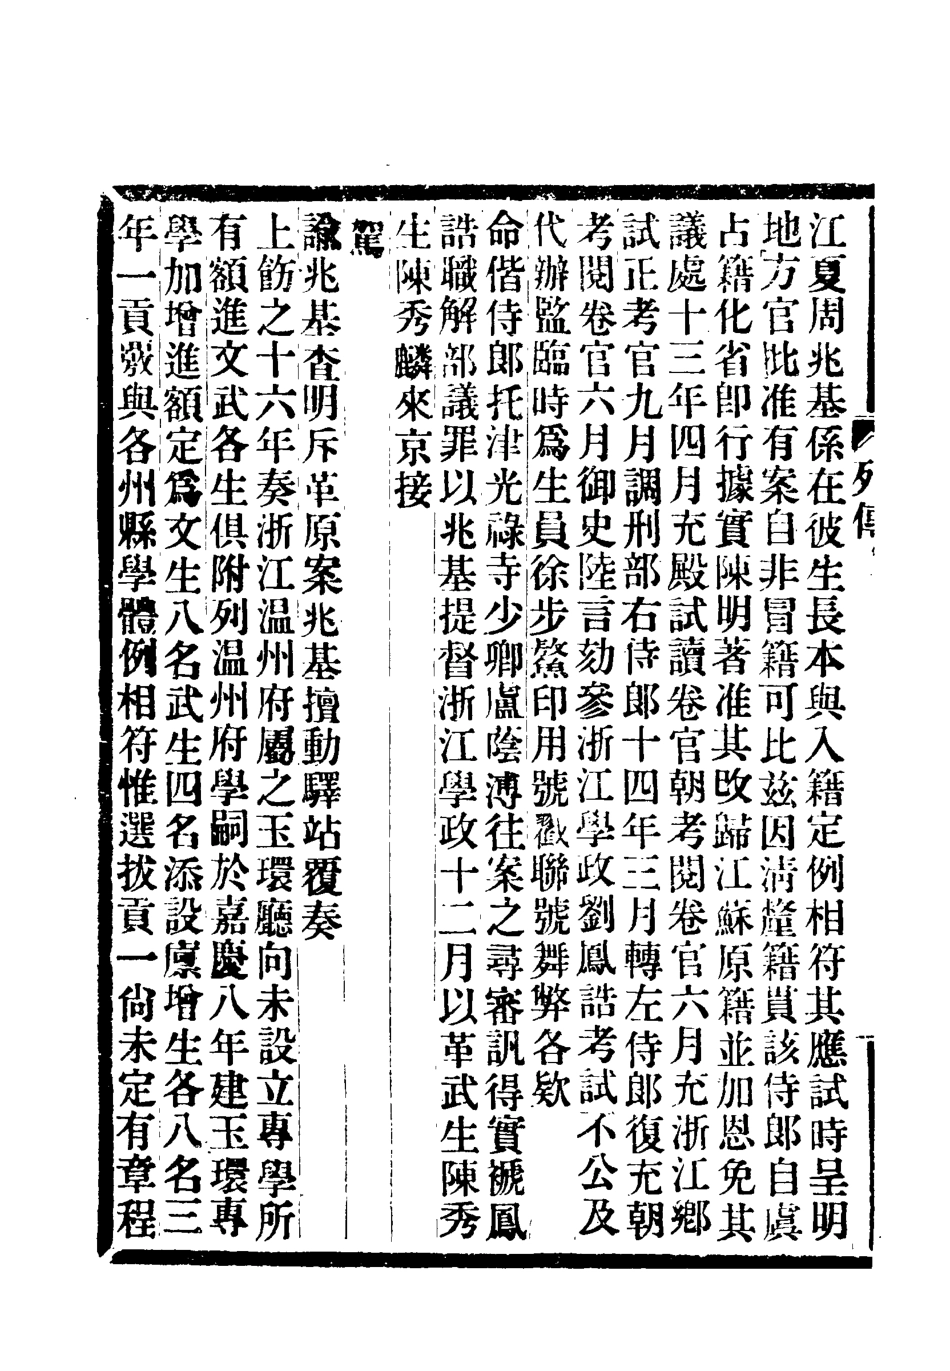 列傳
江夏周兆基係在彼生長本與入籍定例相符其應試時呈明
地方官批准有案自非冒籍可比茲因清釐籍貫該侍郎自虞
占籍化省卽行據實陳明著准其改歸江蘇原籍並加恩免其
議處十三年四月充殿試讀卷官朝考閱卷官六月充浙江鄉
試正考官九月調刑部右侍郎十四年三月轉左侍郎復充朝
考閱卷官六月御史陸言劾參浙江學政劉鳳誥考試不公及
代辦監臨時爲生員徐步鰲印用號戳聯號舞弊各欵
命偕侍郎托津光祿寺少卿盧蔭溥往案之尋審訊得實褫鳳
誥職解部議罪以兆基提督浙江學政十二月以革武生陳秀
生陳秀麟來京接
駕
諭兆基查明斥革原案兆基擅動驛站覆奏
上飭之十六年奏浙江温州府屬之玉環廳向未設立專學所
有額進文武各生俱附列温州府學嗣於嘉慶八年建玉環專
學加增進額定爲文生八名武生四名添設廩增生各八名三
年一貢嵗與各州縣學體例相符惟選拔貢一尙未定有章程